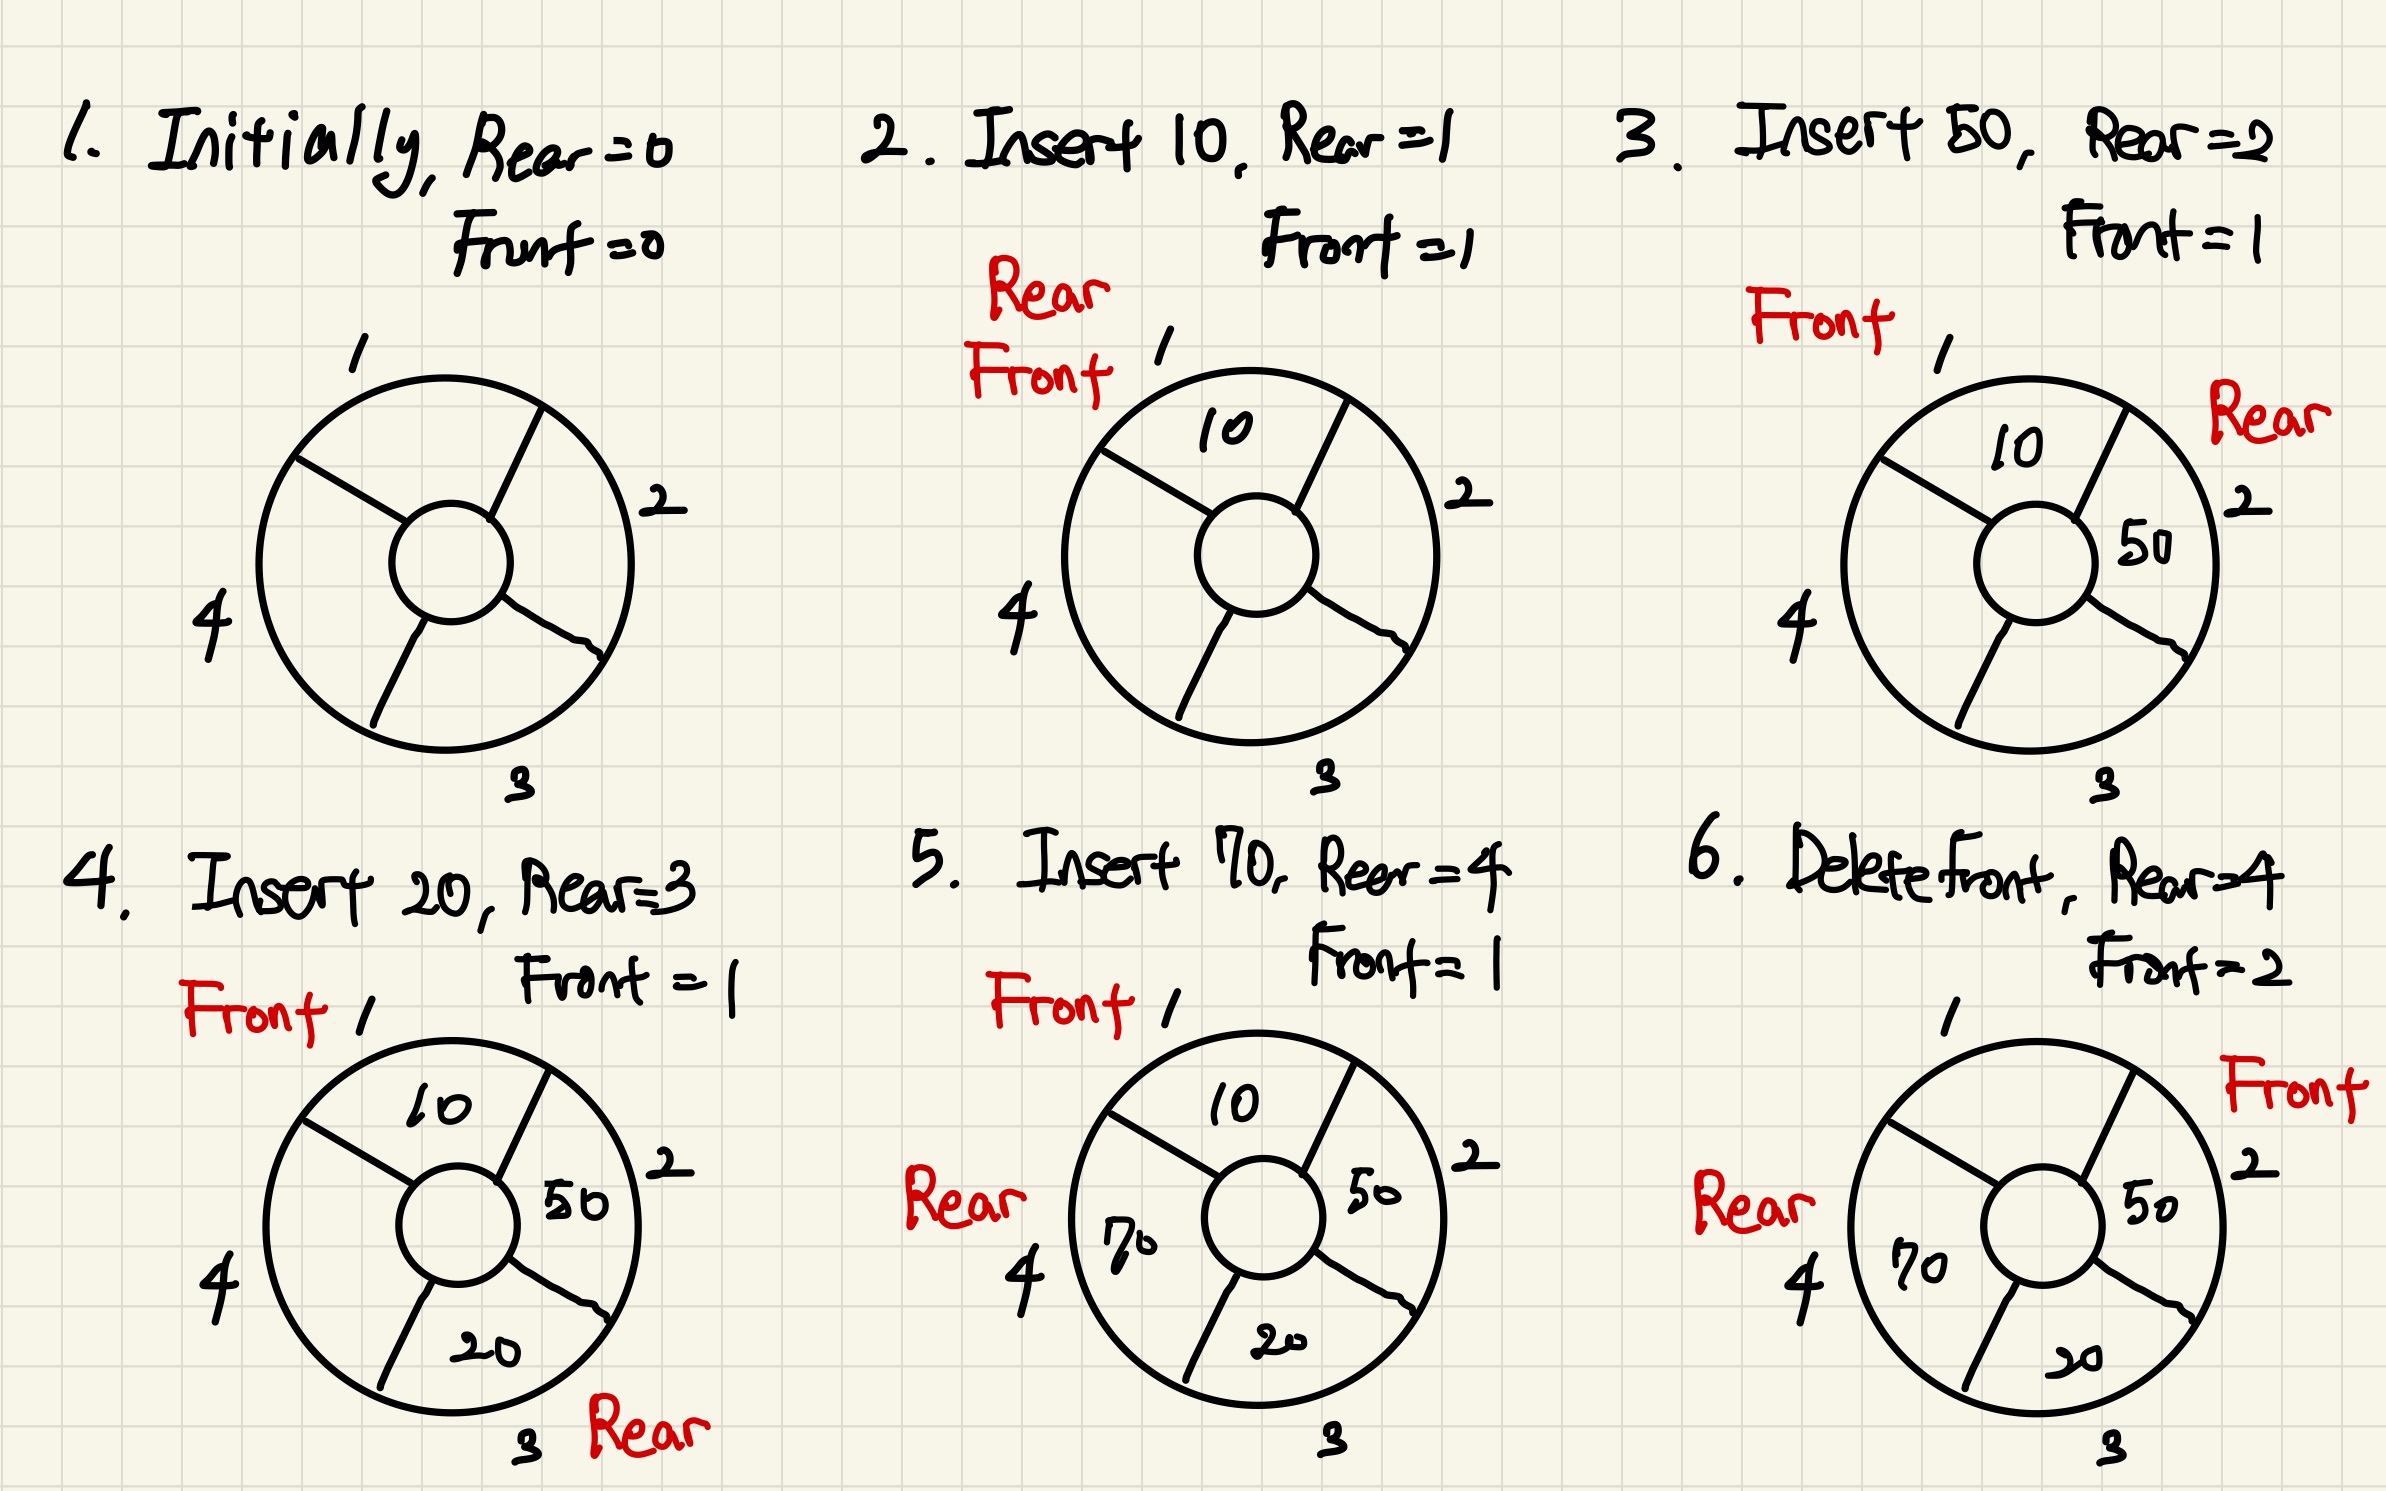 1. Initially, Rear=0
Front=0
1
2
4
3
2. Insert 10, Rear=1
Front=1
Rear
Front
1
10
2
4
3
3. Insert 50, Rear=2
Front=1
Front
1
Rear
10
2
50
4
3
4. Insert 20, Rear=3
Front=1
Front
1
10
2
50
4
20
Rear
3
5. Insert 70, Rear=4
Front=1
Front
1
10
2
50
Rear
70
4
20
3
6. Delete front, Rear=4
Front=2
1
Front
2
50
Rear
70
4
20
3